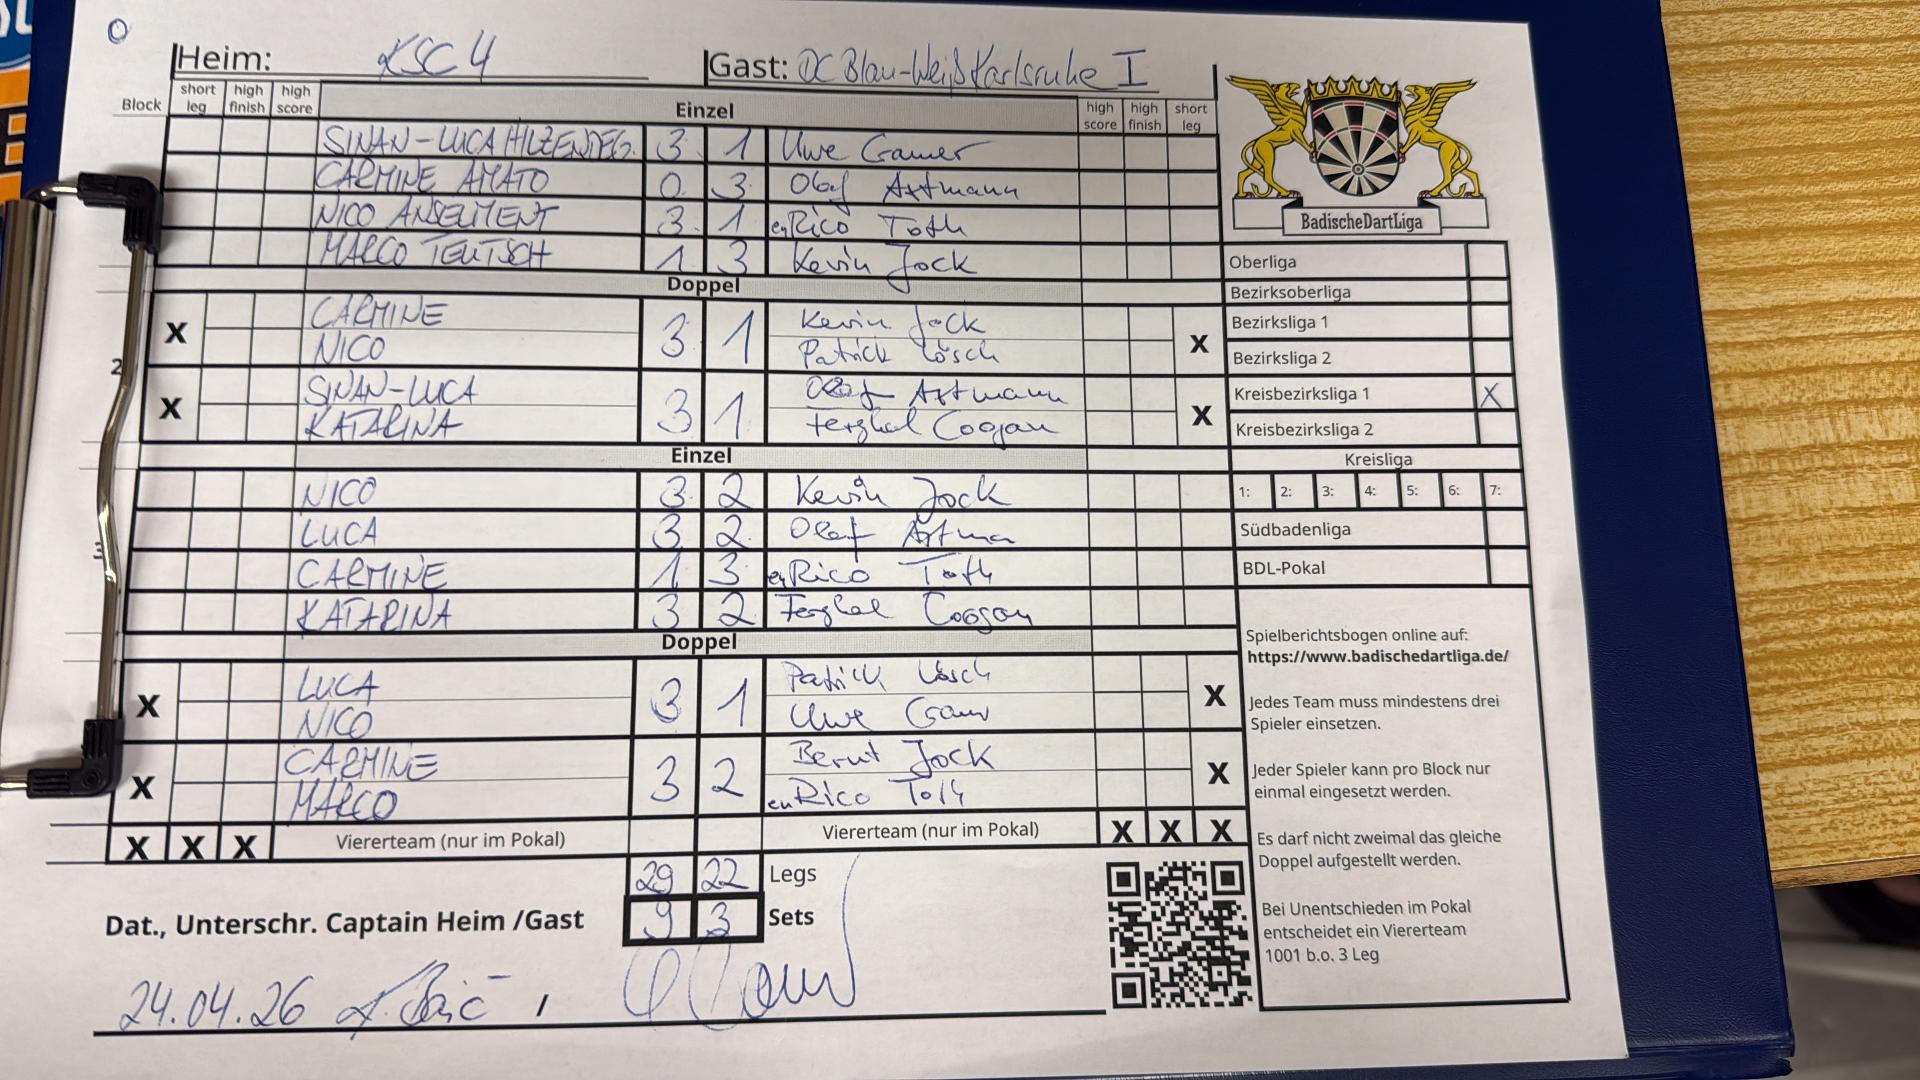 O
Heim: KSC 4 Gast: DC Blau-Weiß Karlsruhe I
Block short leg high finish high score Einzel high score high finish short leg
SINAN-LUCA HILZENDEG. 3 1 Uwe Cramer
CARMINE AMATO 0 3 Olaf Astmann
NICO ANSELMENT 3 1 enRico Toth
MARCO TEUTSCH 1 3 Kevin Jock
Doppel
CARMINE Kevin Jock
X 3 1 X
NICO Patrick Lösch
SINAN-LUCA Olaf Astmann
X 3 1 X
KATARINA Ferghal Coogan
Einzel
NICO 3 2 Kevin Jock
LUCA 3 2 Olaf Astma
CARMINE 1 3 enRico Toth
KATARINA 3 2 Ferghal Coogan
Doppel
LUCA Patrick Lösch
X 3 1 X
NICO Uwe Cramer
CARMINE Bernt Jock
X 3 2 X
MARCO enRico Toth
X X X Viererteam (nur im Pokal) Viererteam (nur im Pokal) X X X
29 22 Legs
9 3 Sets
Dat., Unterschr. Captain Heim /Gast
24.04.26 /
BadischeDartLiga
Oberliga
Bezirksoberliga
Bezirksliga 1
Bezirksliga 2
Kreisbezirksliga 1 X
Kreisbezirksliga 2
Kreisliga
1: 2: 3: 4: 5: 6: 7:
Südbadenliga
BDL-Pokal
Spielberichtsbogen online auf:
https://www.badischedartliga.de/
Jedes Team muss mindestens drei
Spieler einsetzen.
Jeder Spieler kann pro Block nur
einmal eingesetzt werden.
Es darf nicht zweimal das gleiche
Doppel aufgestellt werden.
Bei Unentschieden im Pokal
entscheidet ein Viererteam
1001 b.o. 3 Leg